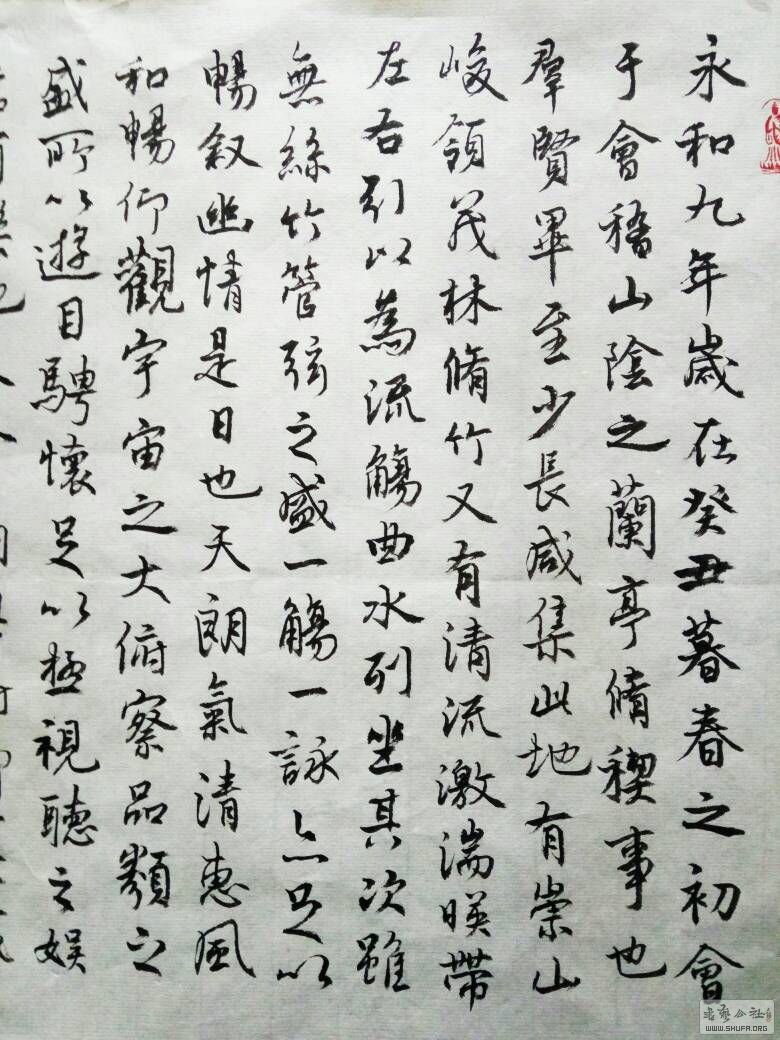 永和九年歲在癸丑暮春之初會
于會稽山陰之蘭亭脩稧事也
羣賢畢至少長咸集此地有崇山
峻領茂林脩竹又有清流激湍暎帶
左右引以為流觴曲水列坐其次雖
無絲竹管弦之盛一觴一詠亦足以
暢敘幽情是日也天朗氣清惠風
和暢仰觀宇宙之大俯察品類之
盛所以遊目騁懷足以極視聽之娛
書藝公社
WWW.SHUFA.ORG